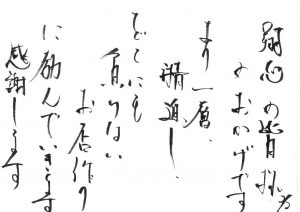 の皆様方
のおかげです
より一層
精進し
どこにも
負けない
お店作り
に励んでいきます
感謝します